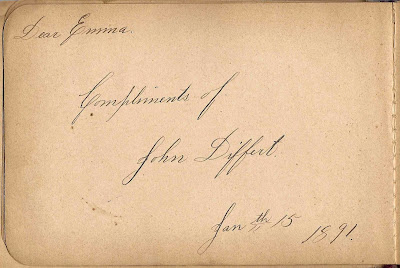 Dear Emma.
Compliments of
John Differt.
Jan th 15
1891.